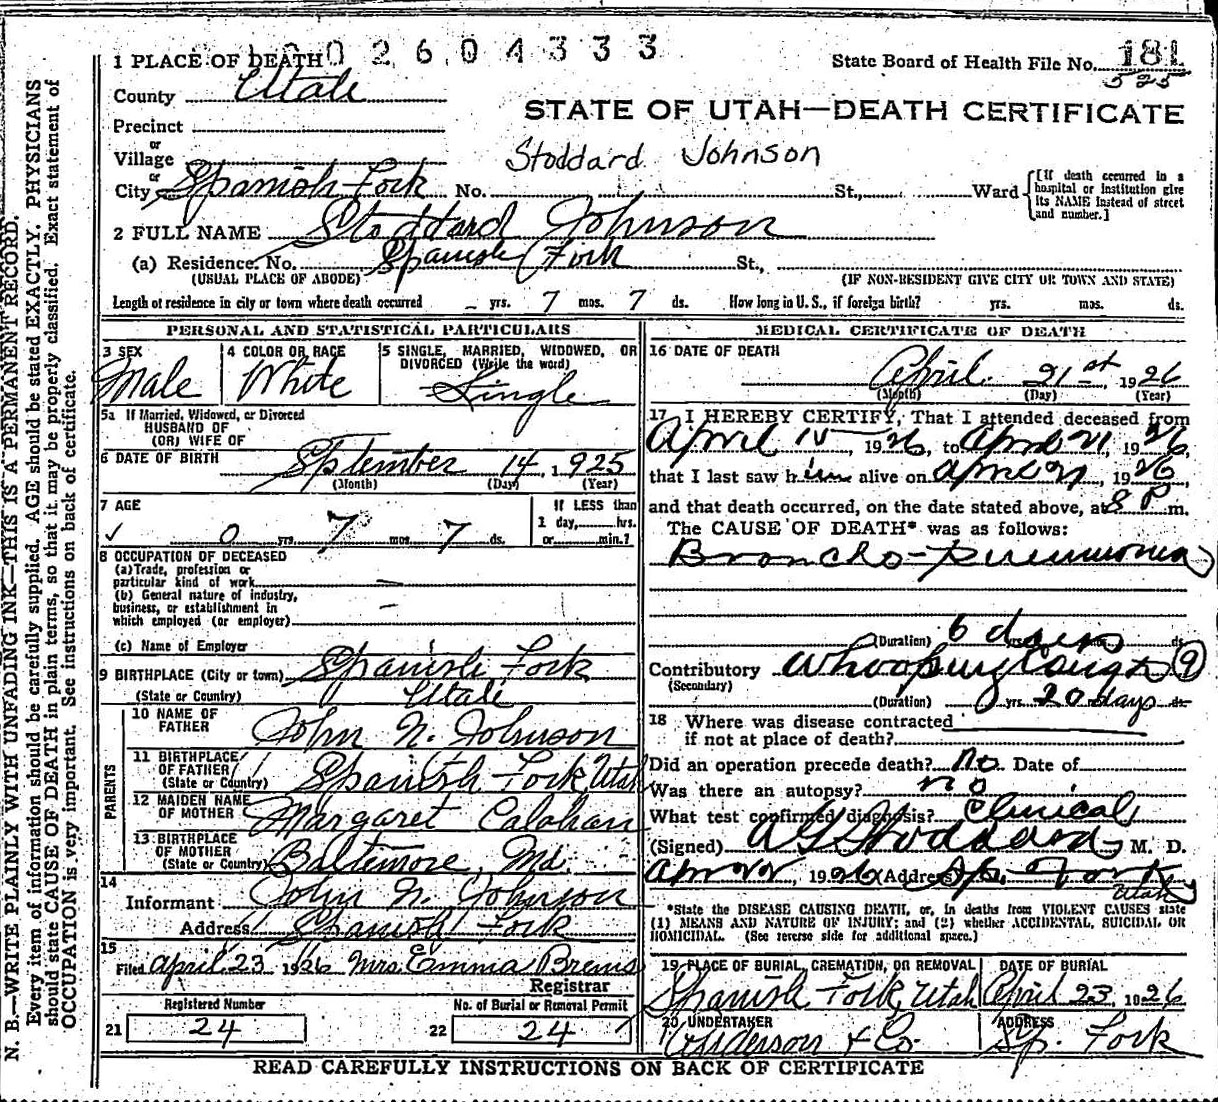 1 PLACE OF DEATH 02604333
State Board of Health File No. 181
525
County Utah
STATE OF UTAH—DEATH CERTIFICATE
Precinct
or
Village
Stoddard Johnson
or
City Spanish Fork No. St., Ward [If death occurred in a hospital or institution give its NAME instead of street and number.]
2 FULL NAME Stoddard Johnson
(a) Residence. No. Spanish Fork St.,
(USUAL PLACE OF ABODE) (IF NON-RESIDENT GIVE CITY OR TOWN AND STATE)
Length of residence in city or town where death occurred – yrs. 7 mos. 7 ds. How long in U. S., if foreign birth? yrs. mos. ds.
PERSONAL AND STATISTICAL PARTICULARS
3 SEX
Male
4 COLOR OR RACE
White
5 SINGLE, MARRIED, WIDOWED, OR
DIVORCED (Write the word)
Single
5a If Married, Widowed, or Divorced
HUSBAND OF
(OR) WIFE OF
6 DATE OF BIRTH September 14, 1925
(Month) (Day) (Year)
7 AGE
If LESS than
1 day, hrs.
or min.?
✓ 0 yrs. 7 mos. 7 ds.
8 OCCUPATION OF DECEASED
(a) Trade, profession or
particular kind of work –
(b) General nature of industry,
business, or establishment in
which employed (or employer) –
(c) Name of Employer
9 BIRTHPLACE (City or town) Spanish Fork
(State or Country) Utah
PARENTS
10 NAME OF
FATHER John N. Johnson
11 BIRTHPLACE
OF FATHER
(State or Country) Spanish Fork, Utah
12 MAIDEN NAME
OF MOTHER Margaret Calahan
13 BIRTHPLACE
OF MOTHER
(State or Country) Baltimore, Md.
14
Informant John N. Johnson
Address Spanish Fork
15
Filed April 23 1926 Mrs. Emma Brems
Registrar
Registered Number
21 24
No. of Burial or Removal Permit
22 24
MEDICAL CERTIFICATE OF DEATH
16 DATE OF DEATH
April 21st, 1926
(Month) (Day) (Year)
17 I HEREBY CERTIFY, That I attended deceased from
April 1926, to April 21, 1926,
that I last saw him alive on April 21, 1926,
and that death occurred, on the date stated above, at 8 P. m.
The CAUSE OF DEATH* was as follows:
Broncho-Pneumonia
(Duration) 6 days yrs. ds.
Contributory Whooping Cough 9
(Secondary)
(Duration) yrs. 20 days ds.
18 Where was disease contracted
if not at place of death?
Did an operation precede death? no Date of
Was there an autopsy? no
What test confirmed diagnosis? Clinical
(Signed) Stoddard, M. D.
Apr 22, 1926 (Address) Sp. Fork
Utah
*State the DISEASE CAUSING DEATH, or, in deaths from VIOLENT CAUSES state
(1) MEANS AND NATURE OF INJURY; and (2) whether ACCIDENTAL, SUICIDAL OR
HOMICIDAL. (See reverse side for additional space.)
19 PLACE OF BURIAL, CREMATION, OR REMOVAL
Spanish Fork, Utah
DATE OF BURIAL
April 23, 1926
20 UNDERTAKER
Anderson & Co.
ADDRESS
Sp. Fork
READ CAREFULLY INSTRUCTIONS ON BACK OF CERTIFICATE
N. B.—WRITE PLAINLY WITH UNFADING INK—THIS IS A PERMANENT RECORD.
Every item of information should be carefully supplied. AGE should be stated EXACTLY. PHYSICIANS
should state CAUSE OF DEATH in plain terms, so that it may be properly classified. Exact statement of
OCCUPATION is very important. See instructions on back of certificate.